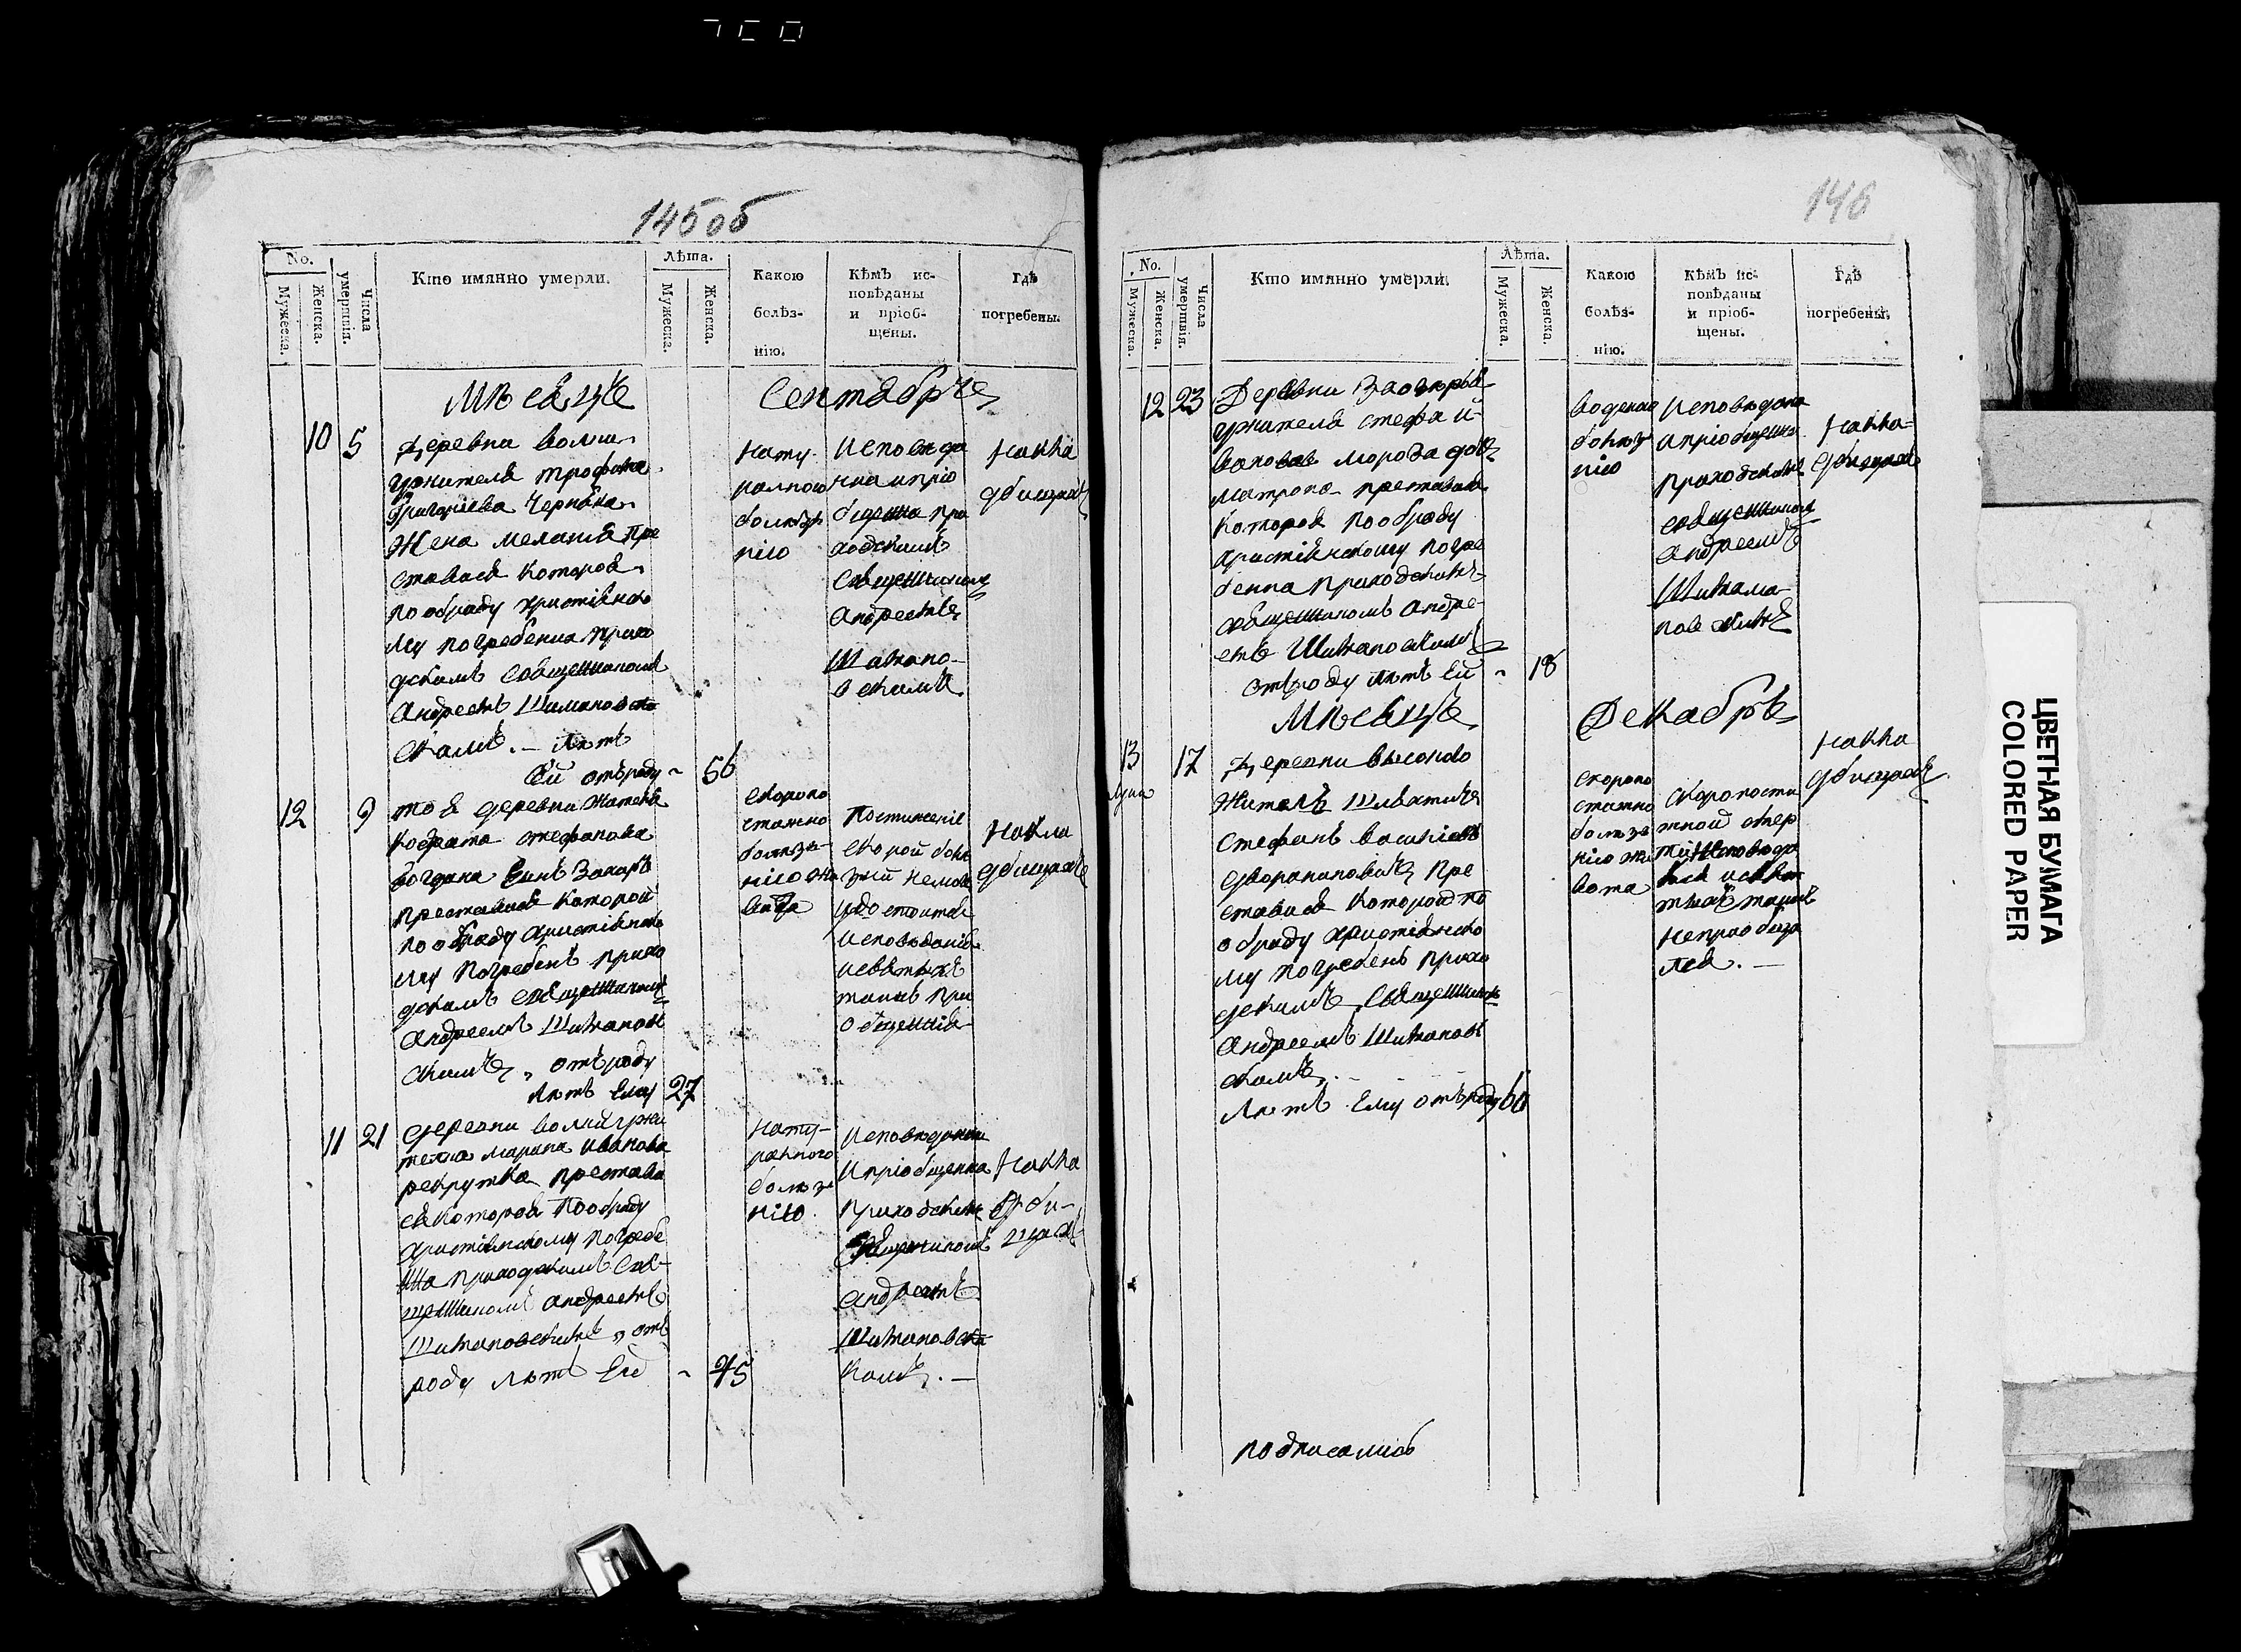 145об
No.
Мужеска.
Женска.
Числа умертвія.
Кто имянно умерли.
Лѣта.
Мужеска.
Женска.
Какою
болѣз-
нію.
Кѣмъ ис-
повѣданы
и пріоб-
щены.
Гдѣ
погребены.
Мѣсяцъ Сентябрь
10 5
деревни
жителя Трофима
Григоріева
Жена Меланія пре
ставися которая
по обряду христіянско
му погребенна прихо
дскимъ священникомъ
Андреемъ Шимановско
скимъ. – лѣтъ
Ей отъ роду ~ 56
нату-
ралною
болѣз
нію
исповѣда
нна и пріо
бщенна при
ходскимъ
священникомъ
Андреемъ
Шимано-
вскимъ
на кла
дбищахъ
12 9
тоя деревни жителя
Кодрата Стефанова
Богдана Сынъ Захаръ
преставися которой
по обряду христіянско
му погребенъ прихо
дскимъ священникомъ
Андреемъ Шимановс
кимъ, отъ роду
лѣтъ Ему 27
скоропо
стижно
болѣз-
нію жи
вота
постиженіе
скорой болѣ
зни немогъ
удостоится
исповѣданія
и святыхъ
таинъ прі
общенія
на кла
дбищахъ
11 21
деревни
Марина Иванова
рекрутка престави
ся которая по обряду
христіянскому погребе
нна приходскимъ свя-
щенникомъ Андреемъ
Шимановскимъ, отъ
роду лѣтъ Ей ~ 45
нату-
ралною
болѣз
нію.
исповѣданна
и пріобщенна
приходскимъ
священникомъ
Андреемъ
Шимановс
кимъ. –
на кла
дби-
щахъ
146
No.
Мужеска.
Женска.
Числа умертвія.
Кто имянно умерли.
Лѣта.
Мужеска.
Женска.
Какою
болѣз-
нію.
Кѣмъ ис-
повѣданы
и пріоб-
щены.
Гдѣ
погребены.
12 23
Деревни
жителя Стефа
Мороза дочь
Матрона преставися
которая по обряду
христіянскому погре
бенна приходскимъ
священникомъ Андре-
емъ Шимановскимъ
отъ роду лѣтъ Ей ~ 18
водяною
болѣз
нію
исповѣдана
и пріобщенна
приходскимъ
священникомъ
Андреемъ
Шима
новскимъ
на кла-
дбищахъ
Мѣсяцъ Декабрь
13 17
деревни Высоко
Стефанъ Василіевъ
пре
ставися которой по
обряду христіянско
му погребенъ прихо
дскимъ священникомъ
Андреемъ Шимановс
кимъ. –
лѣтъ Ему отъ роду 60
скоропо
стижно
болѣзн
нію жи
вота
скоропости
жной смер
ти исповѣда
лся и свя
тыхъ таинъ
непріобща
лся. –
на кла
дбищахъ
подписалисъ
ЦВЕТНАЯ БУМАГА
COLORED PAPER